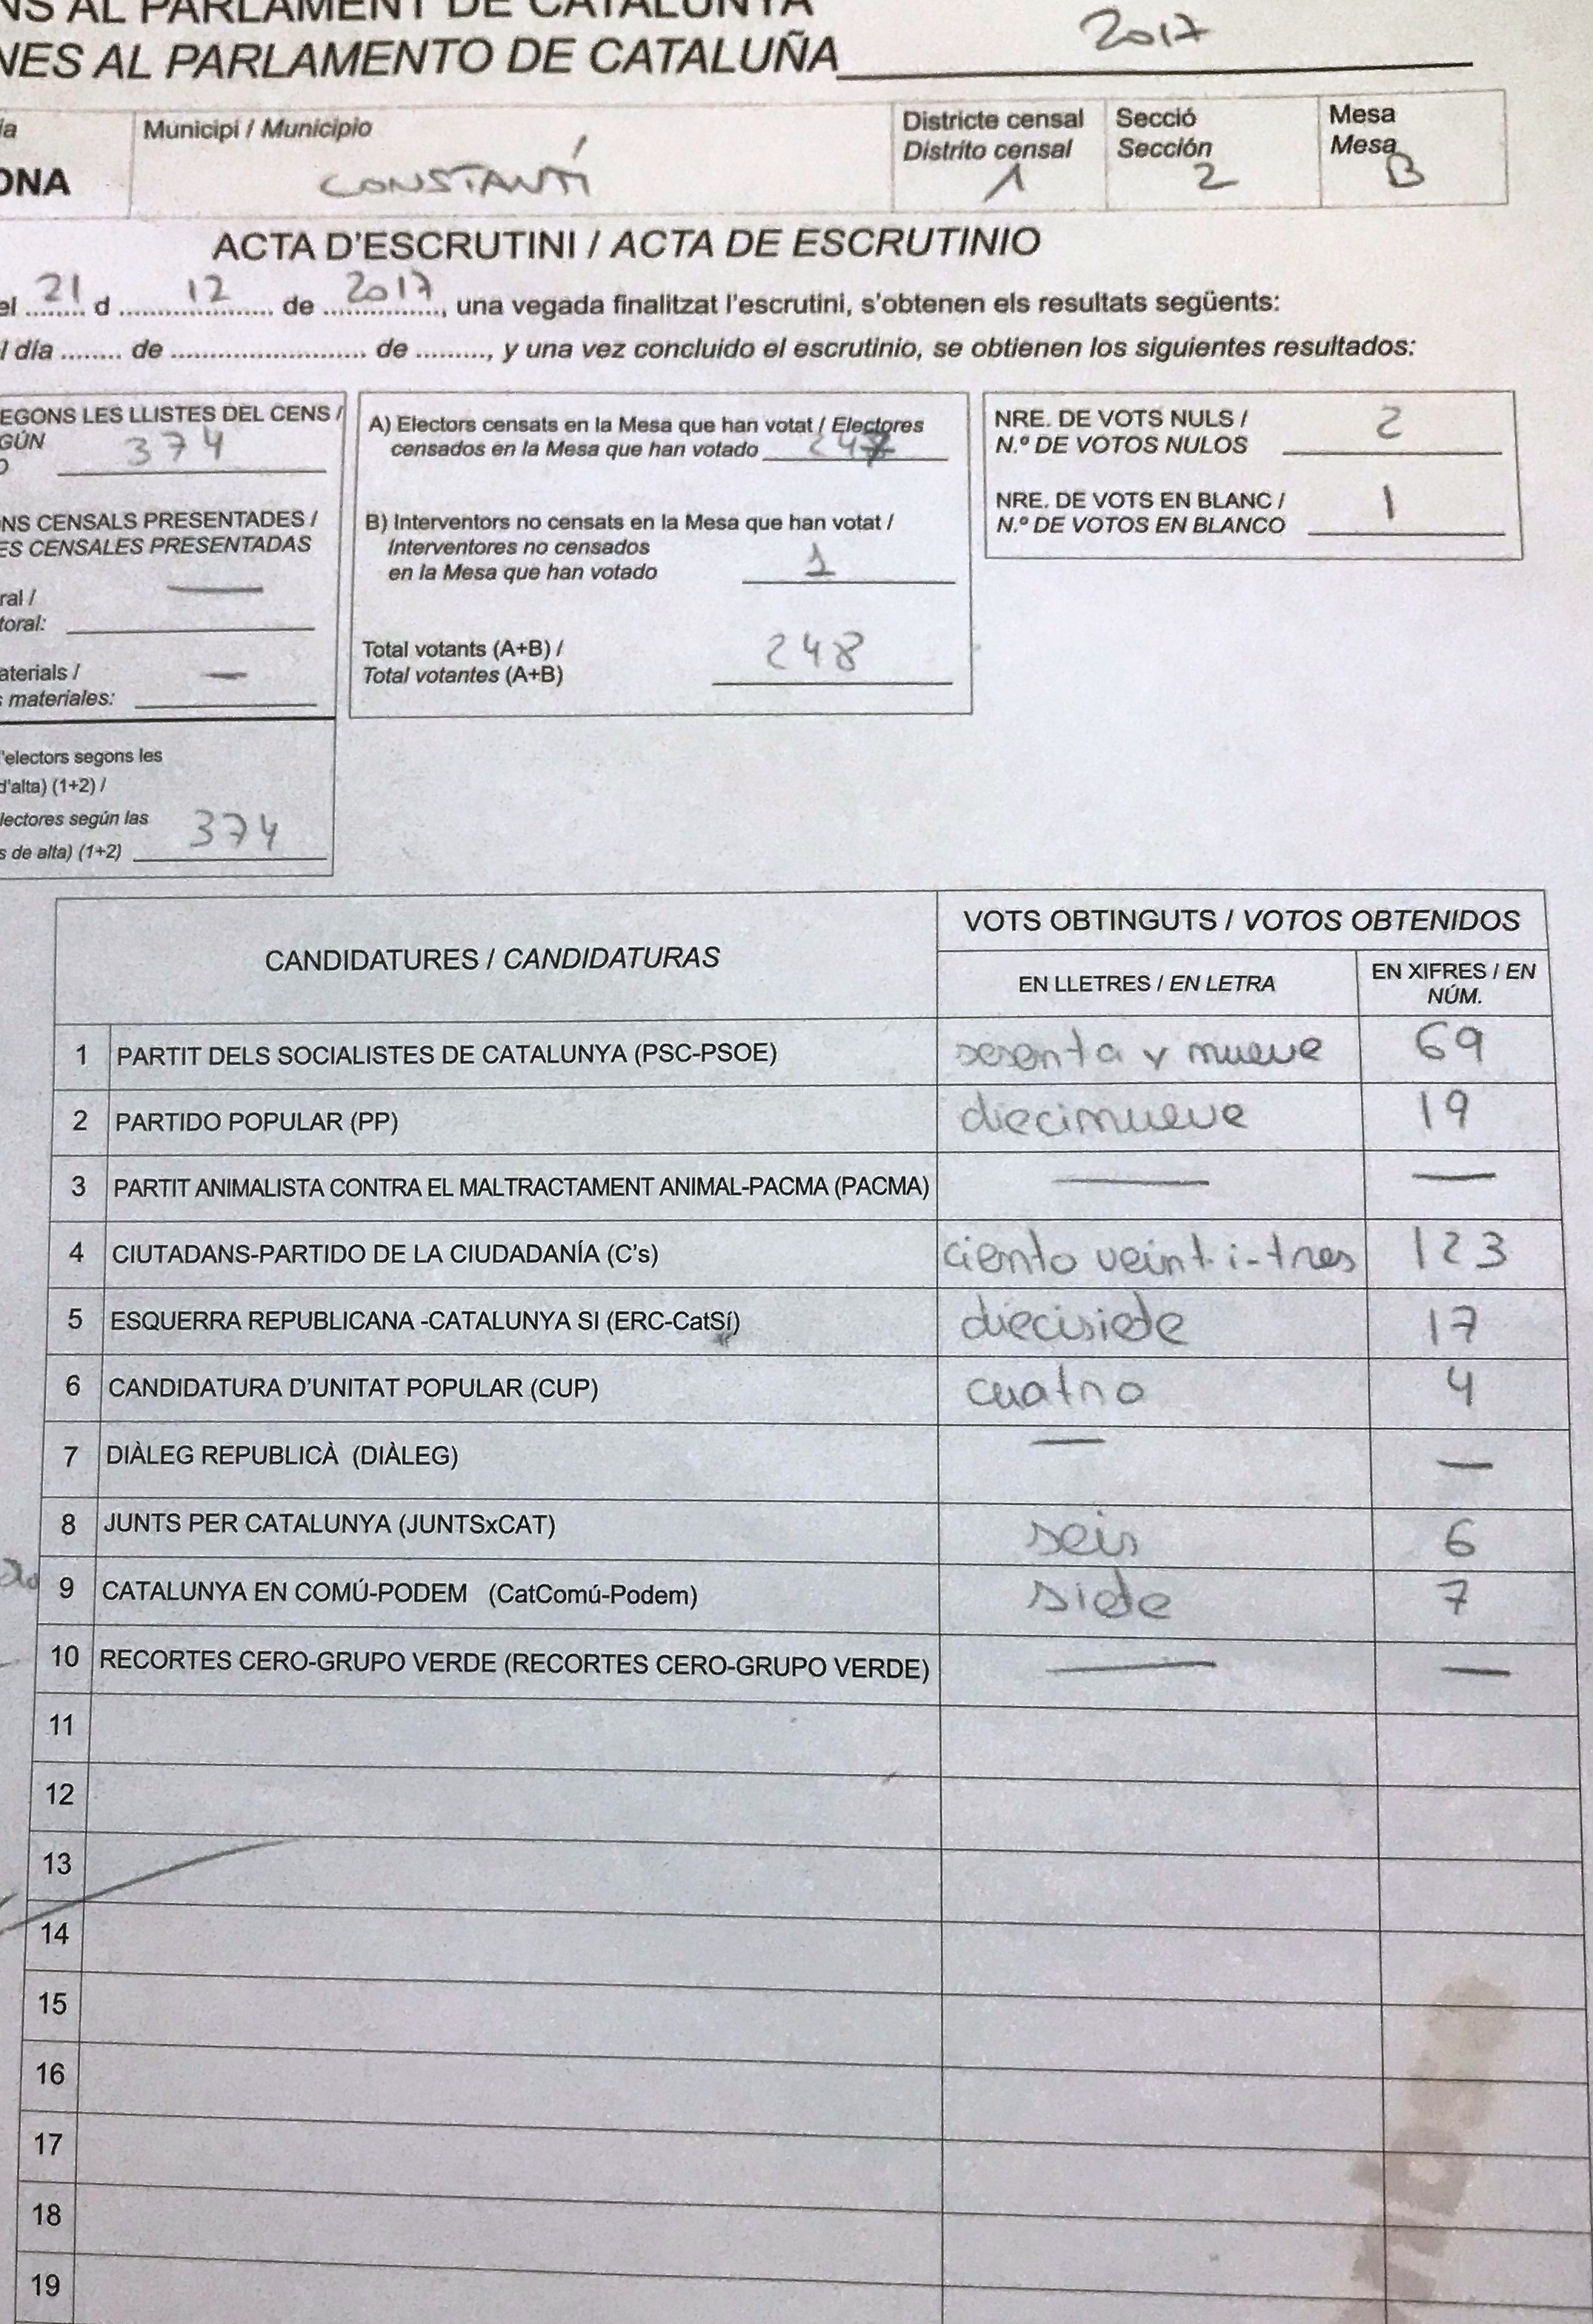 NS AL PARLAMENT DE CATALUNYA
NES AL PARLAMENTO DE CATALUÑA 2017
ia
ONA
Municipi / Municipio
CONSTANTÍ
Districte censal
Distrito censal
1
Secció
Sección
2
Mesa
Mesa
B
ACTA D'ESCRUTINI / ACTA DE ESCRUTINIO
el ........ 21 d .................... 12 de ............ 2017, una vegada finalitzat l'escrutini, s'obtenen els resultats següents:
l día ........ de ........................ de ........, y una vez concluido el escrutinio, se obtienen los siguientes resultados:
EGONS LES LLISTES DEL CENS /
GÚN
374
NS CENSALS PRESENTADES /
ES CENSALES PRESENTADAS
—
ral /
toral:
aterials /
s materiales: —
'electors segons les
d'alta) (1+2) /
lectores según las
s de alta) (1+2) 374
A) Electors censats en la Mesa que han votat / Electores
censados en la Mesa que han votado 247
B) Interventors no censats en la Mesa que han votat /
Interventores no censados
en la Mesa que han votado 1
Total votants (A+B) /
Total votantes (A+B) 248
NRE. DE VOTS NULS /
N.º DE VOTOS NULOS 2
NRE. DE VOTS EN BLANC /
N.º DE VOTOS EN BLANCO 1
CANDIDATURES / CANDIDATURAS
VOTS OBTINGUTS / VOTOS OBTENIDOS
EN LLETRES / EN LETRA
EN XIFRES / EN
NÚM.
1 PARTIT DELS SOCIALISTES DE CATALUNYA (PSC-PSOE) sesenta y nueve 69
2 PARTIDO POPULAR (PP) diecinueve 19
3 PARTIT ANIMALISTA CONTRA EL MALTRACTAMENT ANIMAL-PACMA (PACMA) — —
4 CIUTADANS-PARTIDO DE LA CIUDADANÍA (C's) ciento veinti-tres 123
5 ESQUERRA REPUBLICANA -CATALUNYA SI (ERC-CatSí) diecisiete 17
6 CANDIDATURA D'UNITAT POPULAR (CUP) cuatro 4
7 DIÀLEG REPUBLICÀ (DIÀLEG) — —
8 JUNTS PER CATALUNYA (JUNTSxCAT) seis 6
9 CATALUNYA EN COMÚ-PODEM (CatComú-Podem) siete 7
10 RECORTES CERO-GRUPO VERDE (RECORTES CERO-GRUPO VERDE) — —
11
12
13
14
15
16
17
18
19